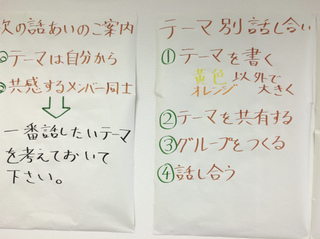 次の話あいのご案内
◎テーマは自分から
◎共感するメンバー同士
一番話したいテーマ
を考えておいて
下さい。
テーマ別話し合い
①テーマを書く
黄色 以外で
オレンジ 大きく
②テーマを共有する
③グループをつくる
④話し合う